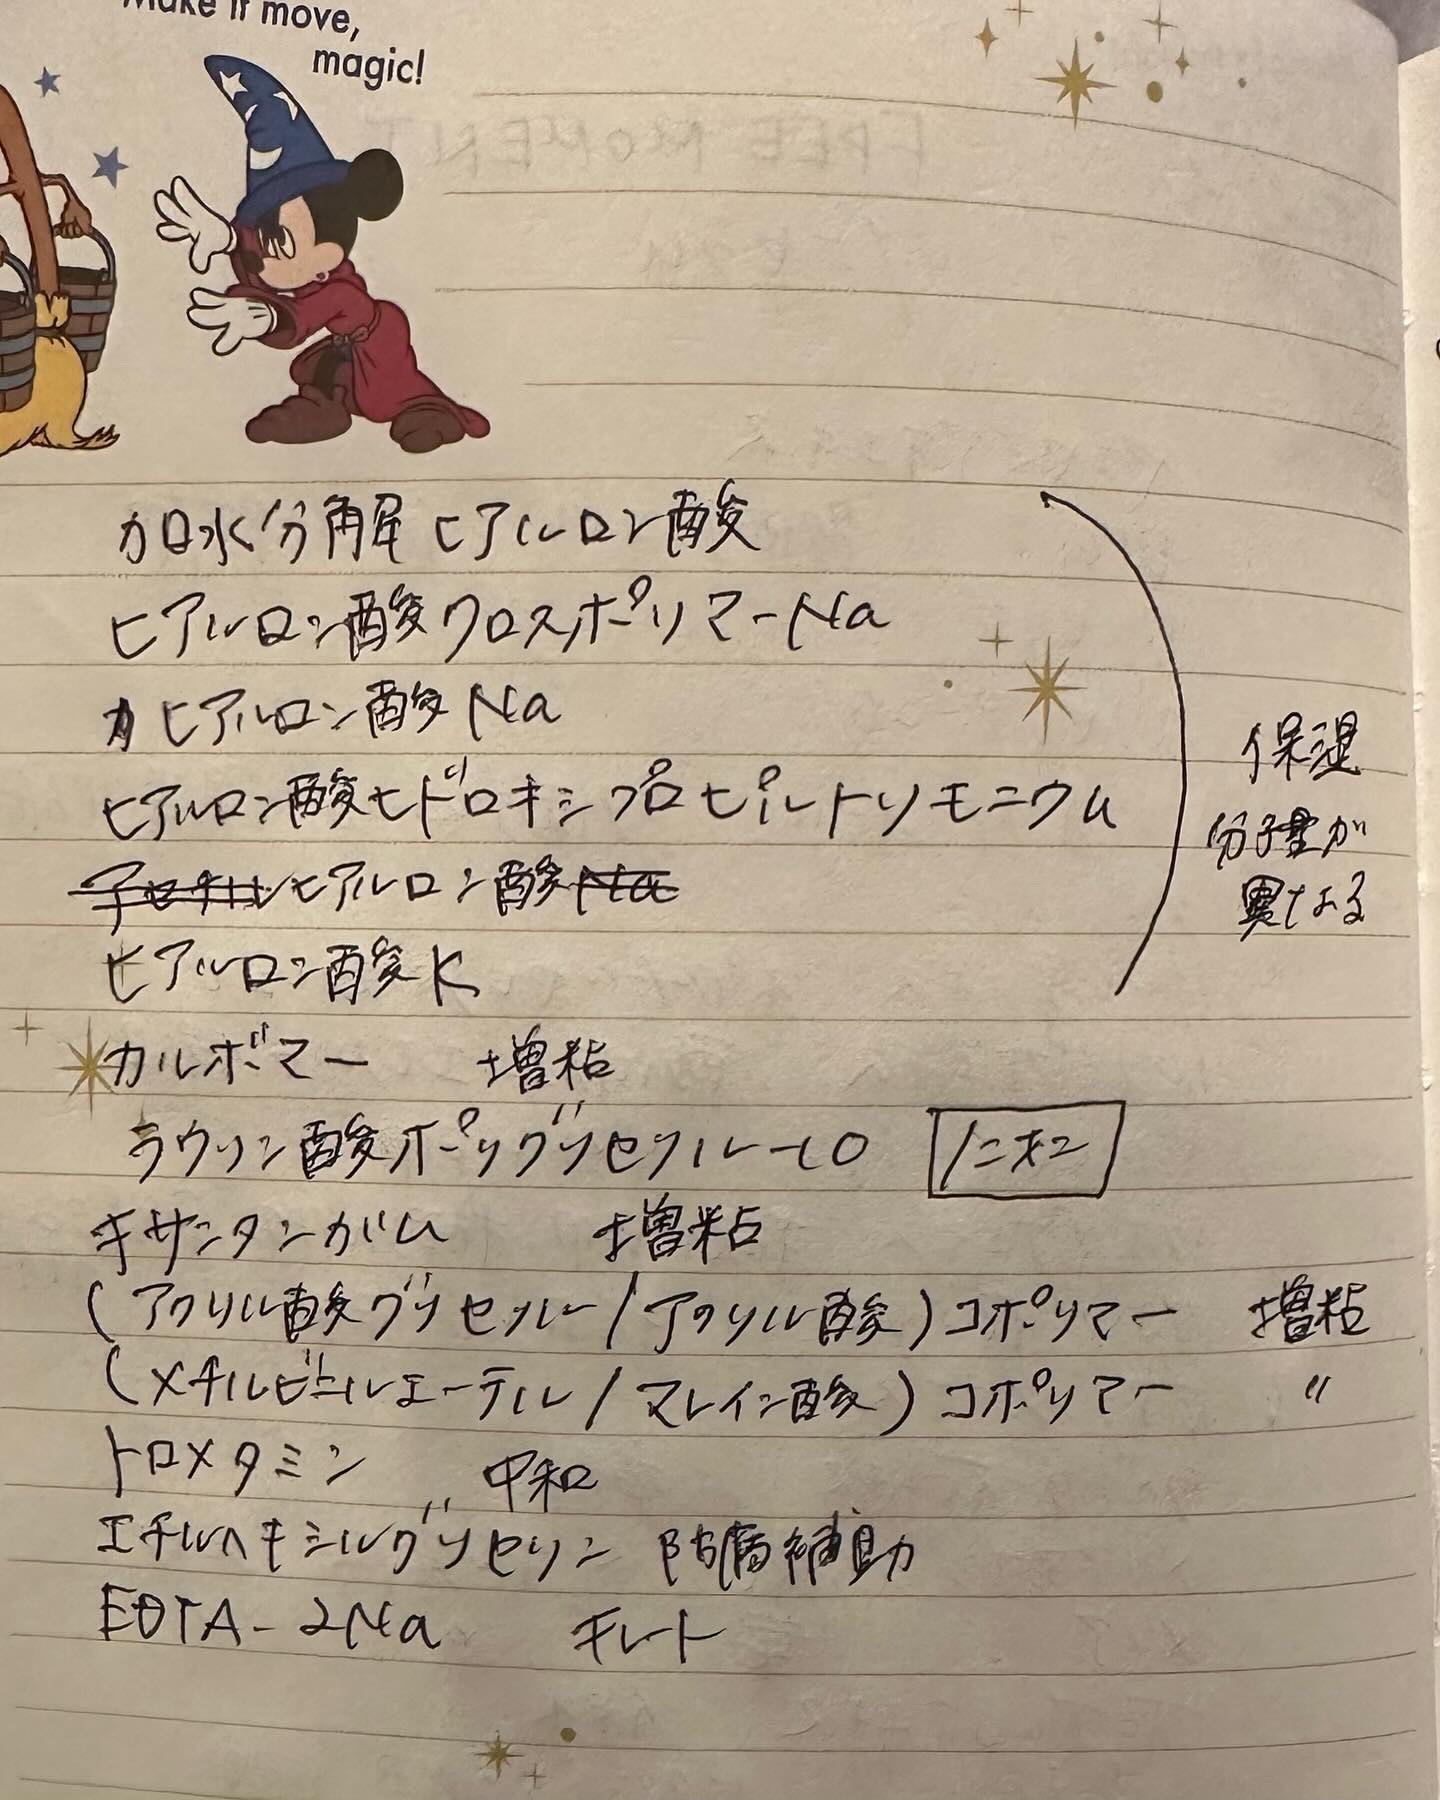 Make it move,
magic!
加水分解ヒアルロン酸
ヒアルロン酸クロスポリマーNa
カヒアルロン酸Na
ヒアルロン酸ヒドロキシプロピルトリモニウム
アセチルヒアルロン酸Na
ヒアルロン酸K
保湿
分子量が
異なる
カルボマー 増粘
ラウリン酸ポリグリセリル-10 ノニオン
キサンタンガム 増粘
(アクリル酸グリセリル/アクリル酸)コポリマー 増粘
(メチルビニルエーテル/マレイン酸)コポリマー 〃
トロメタミン 中和
エチルヘキシルグリセリン 防腐補助
EDTA-2Na キレート